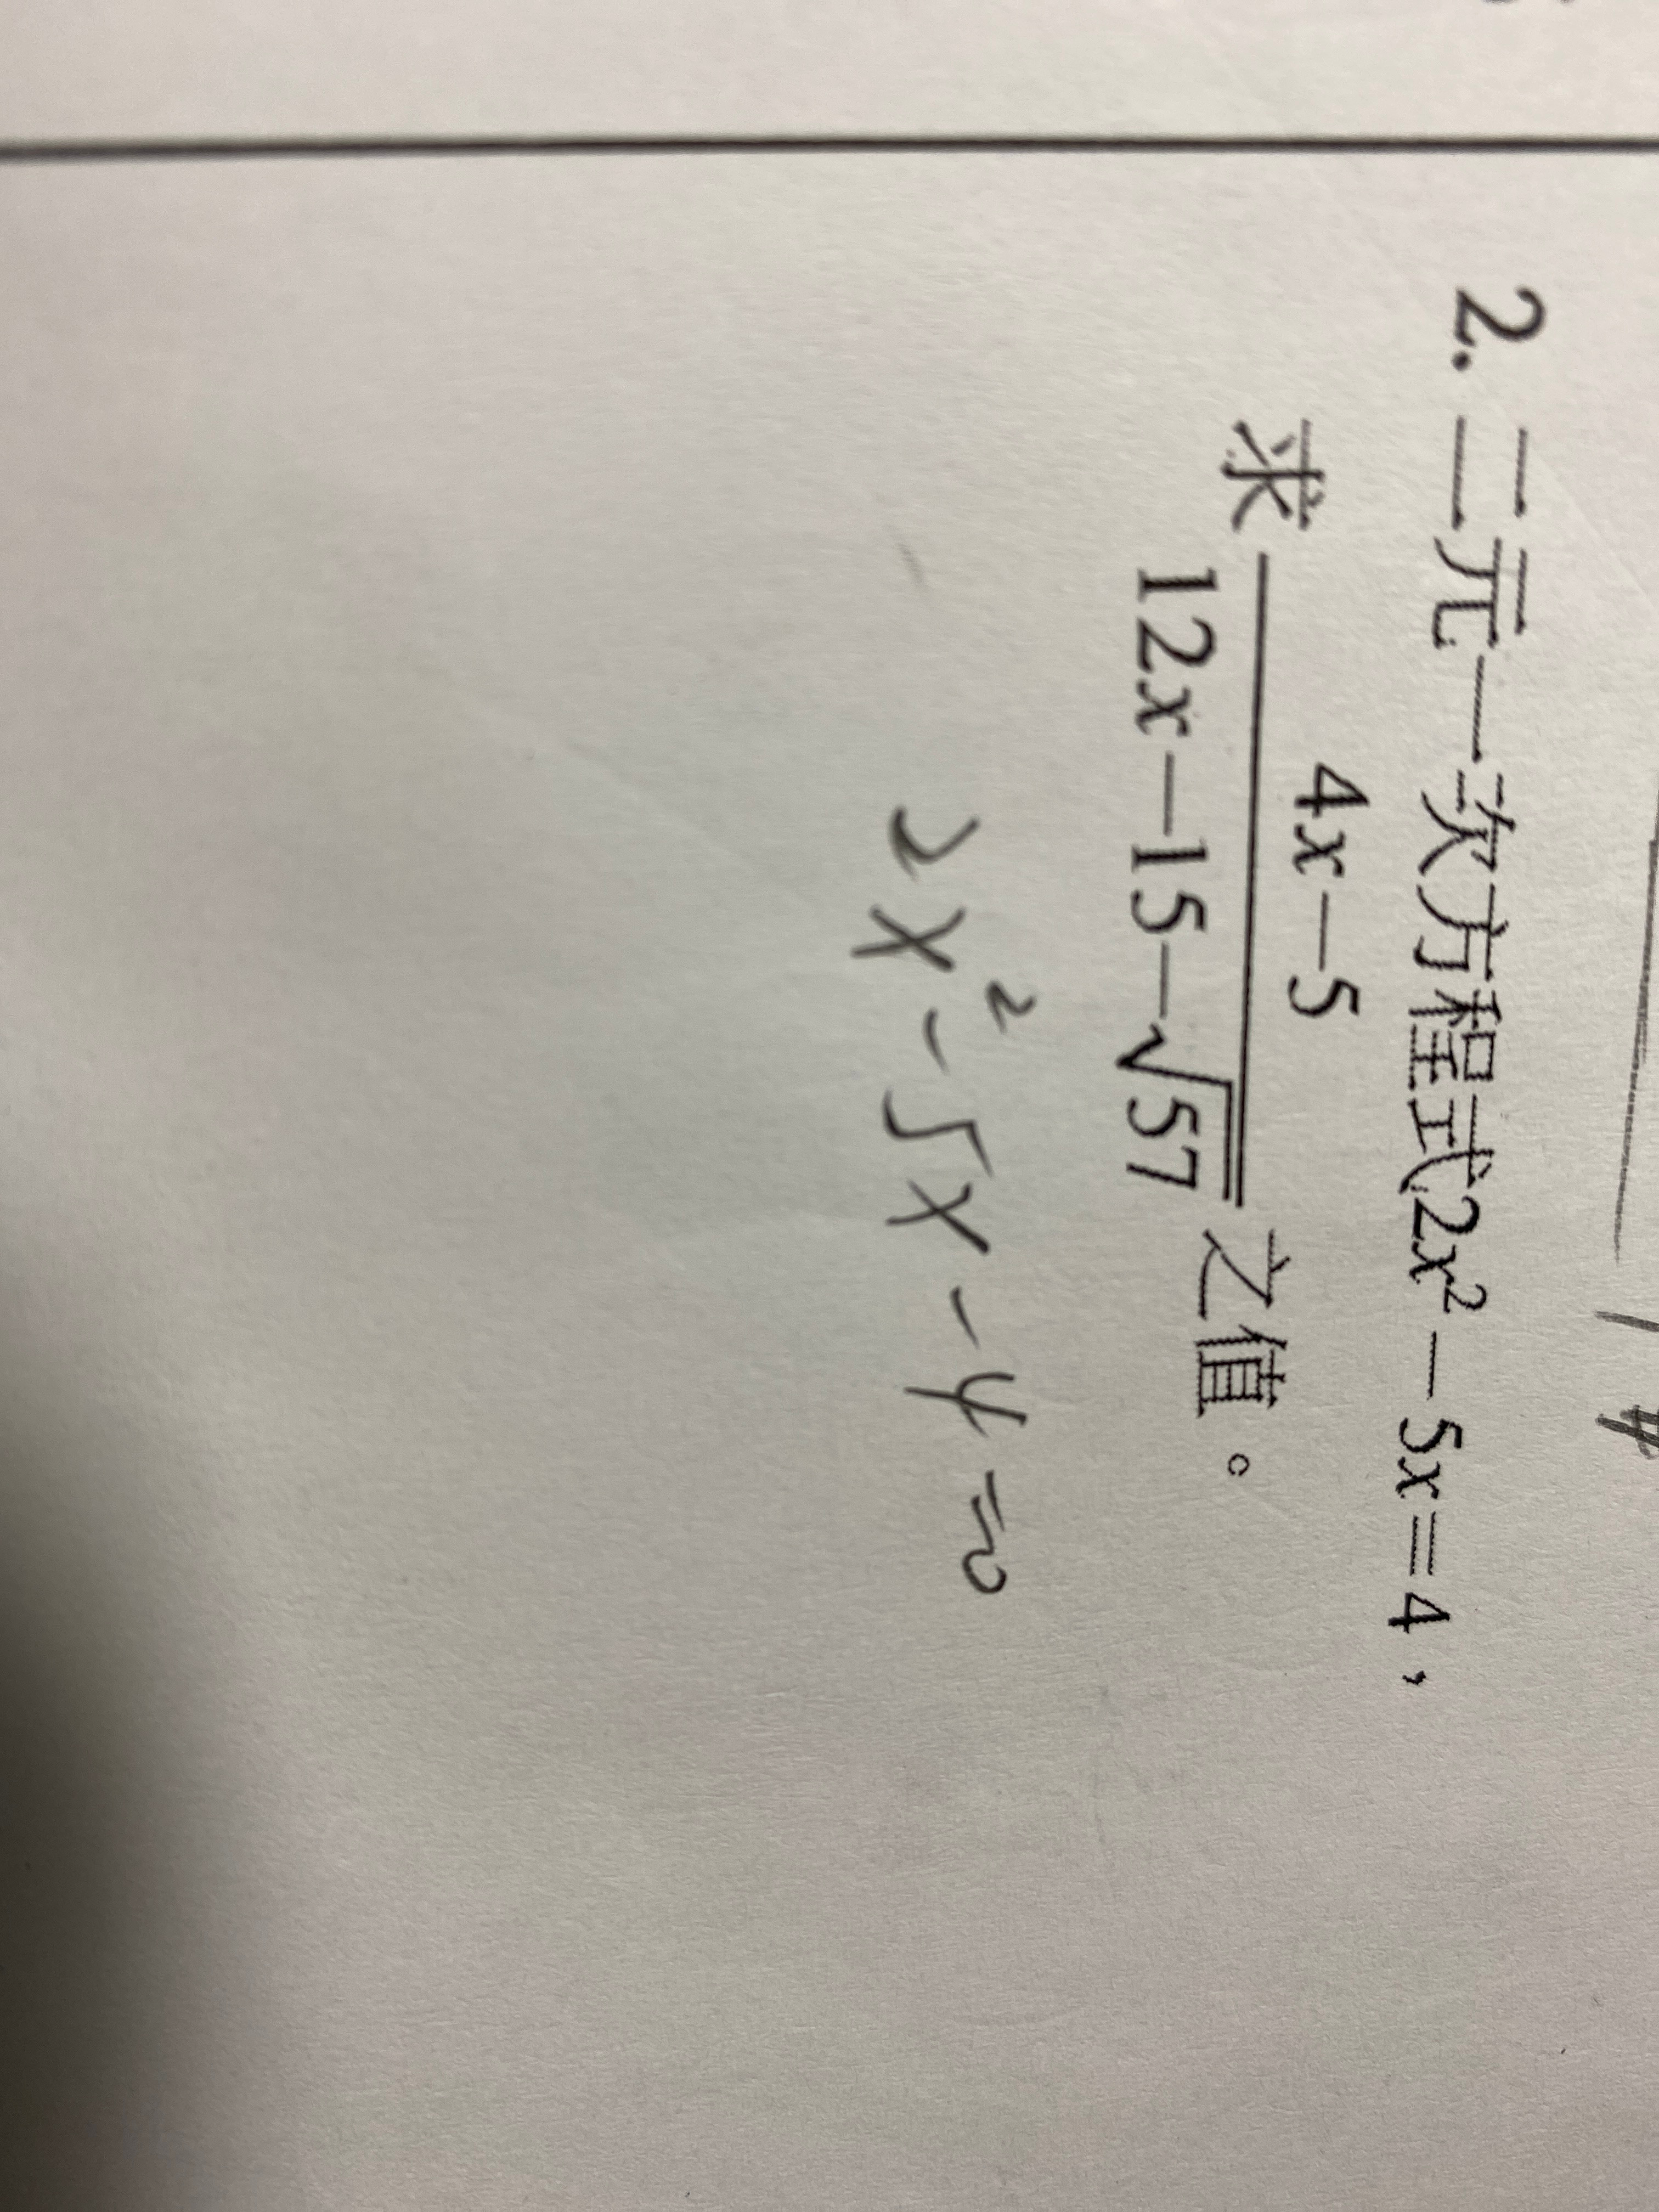 2. 二元一次方程式2x² − 5x = 4，
求 \frac{4x−5}{12x−15−√57} 之值。
2x² - 5x - 4 = 0